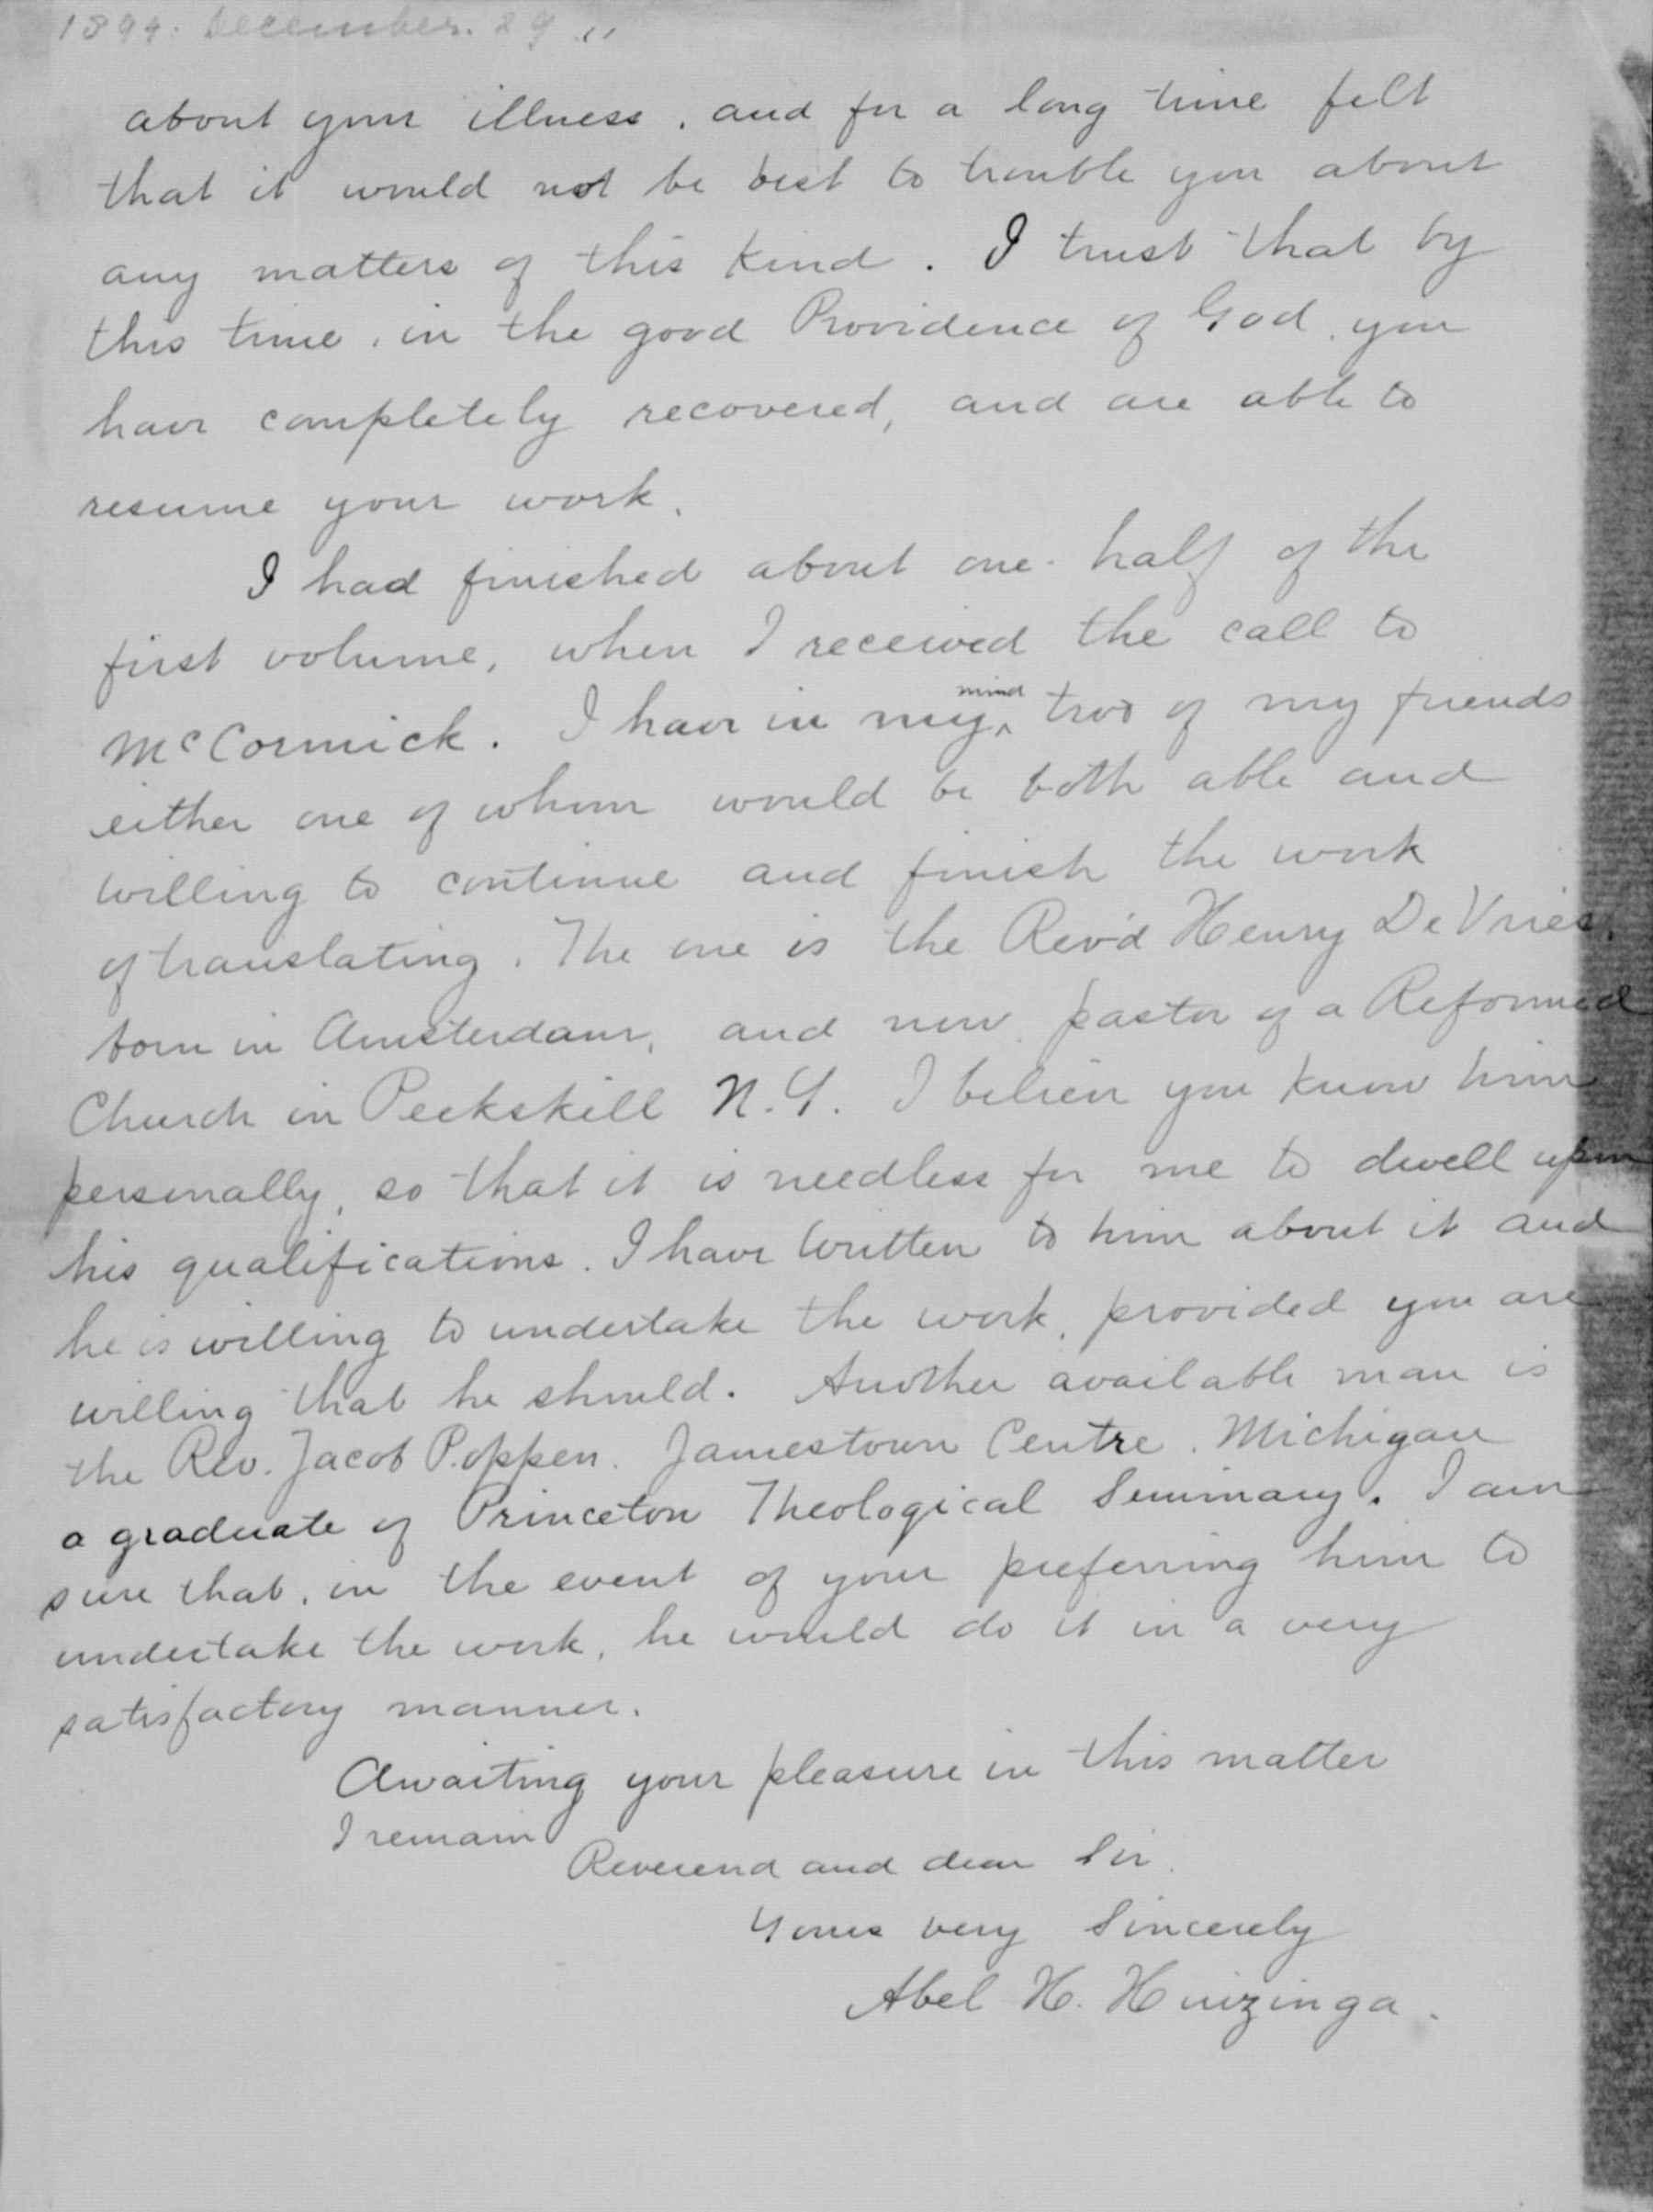 1894. December. 29 "
about your illness, and for a long time felt
that it would not be best to trouble you about
any matters of this kind. I trust that by
this time, in the good Providence of God, you
have completely recovered, and are able to
resume your work.
I had finished about one-half of the
first volume, when I received the call to
McCormick. I have in my mind two of my friends
either one of whom would be both able and
willing to continue and finish the work
of translating. The one is the Rev'd Henry De Vries,
born in Amsterdam, and now pastor of a Reformed
Church in Peekskill N.Y. I believe you know him
personally, so that it is needless for me to dwell upon
his qualifications. I have written to him about it and
he is willing to undertake the work, provided you are
willing that he should. Another available man is
the Rev. Jacob Poppen. Jamestown Centre. Michigan
a graduate of Princeton Theological Seminary. I am
sure that, in the event of your preferring him to
undertake the work, he would do it in a very
satisfactory manner.
Awaiting your pleasure in this matter
I remain
Reverend and dear Sir.
Yours very Sincerely
Abel H. Huizinga.